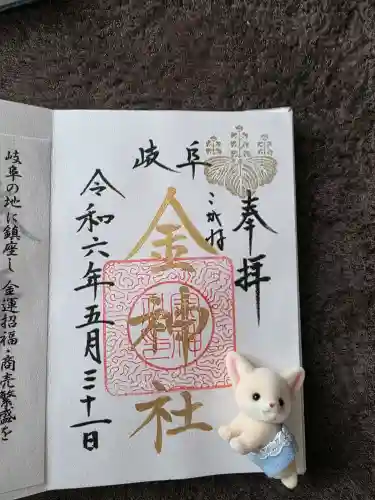 岐阜
奉拝
こがね
金神社
令和六年五月三十一日
岐阜の地に鎮座し 金運招福・商売繁盛を